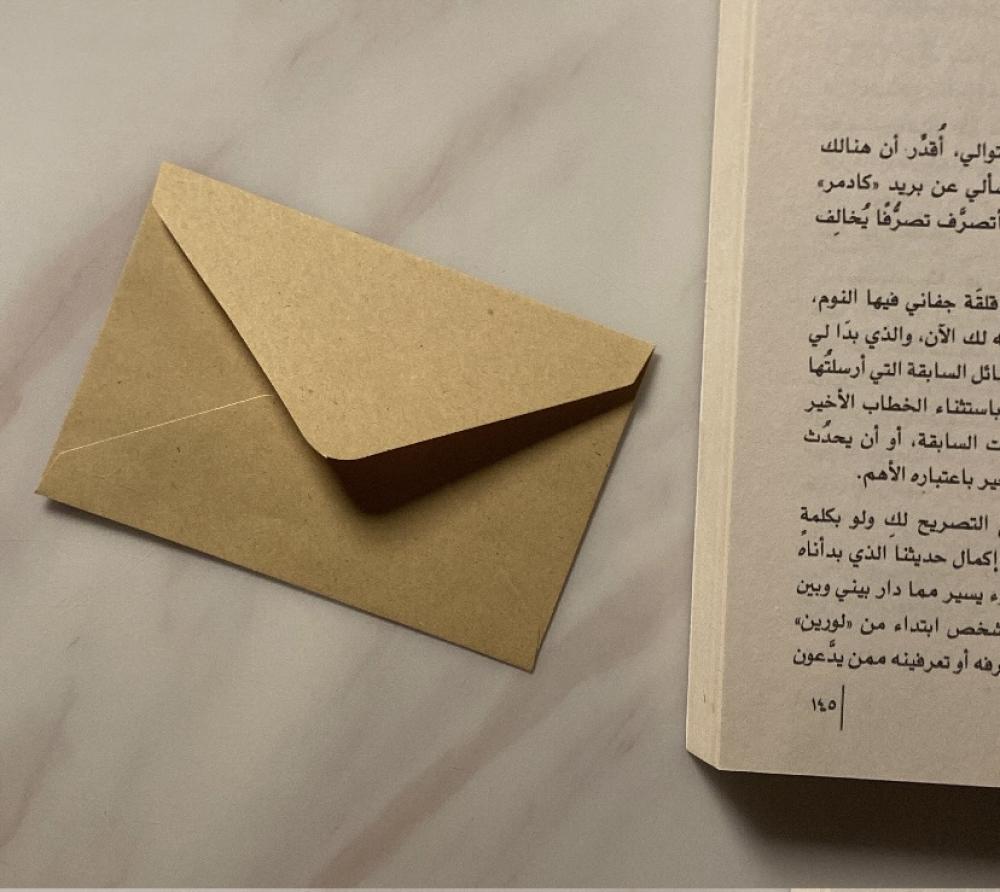 أُقدَّر أن هنالك
عن بريد «كادمر»
تصرُّفًا يُخالِف
قلقَة جفاني فيها النوم،
لك الآن، والذي بدَا لي
السابقة التي أرسلتُها
باستثناء الخطاب الأخير
السابقة، أو أن يحدُث
باعتباره الأهم.
التصريح لكِ ولو بكلمةٍ
إكمال حديثنا الذي بدأناه
يسير مما دار بيني وبين
ابتداء من «لورين»
أو تعرفينه ممن يدَّعون
١٤٥